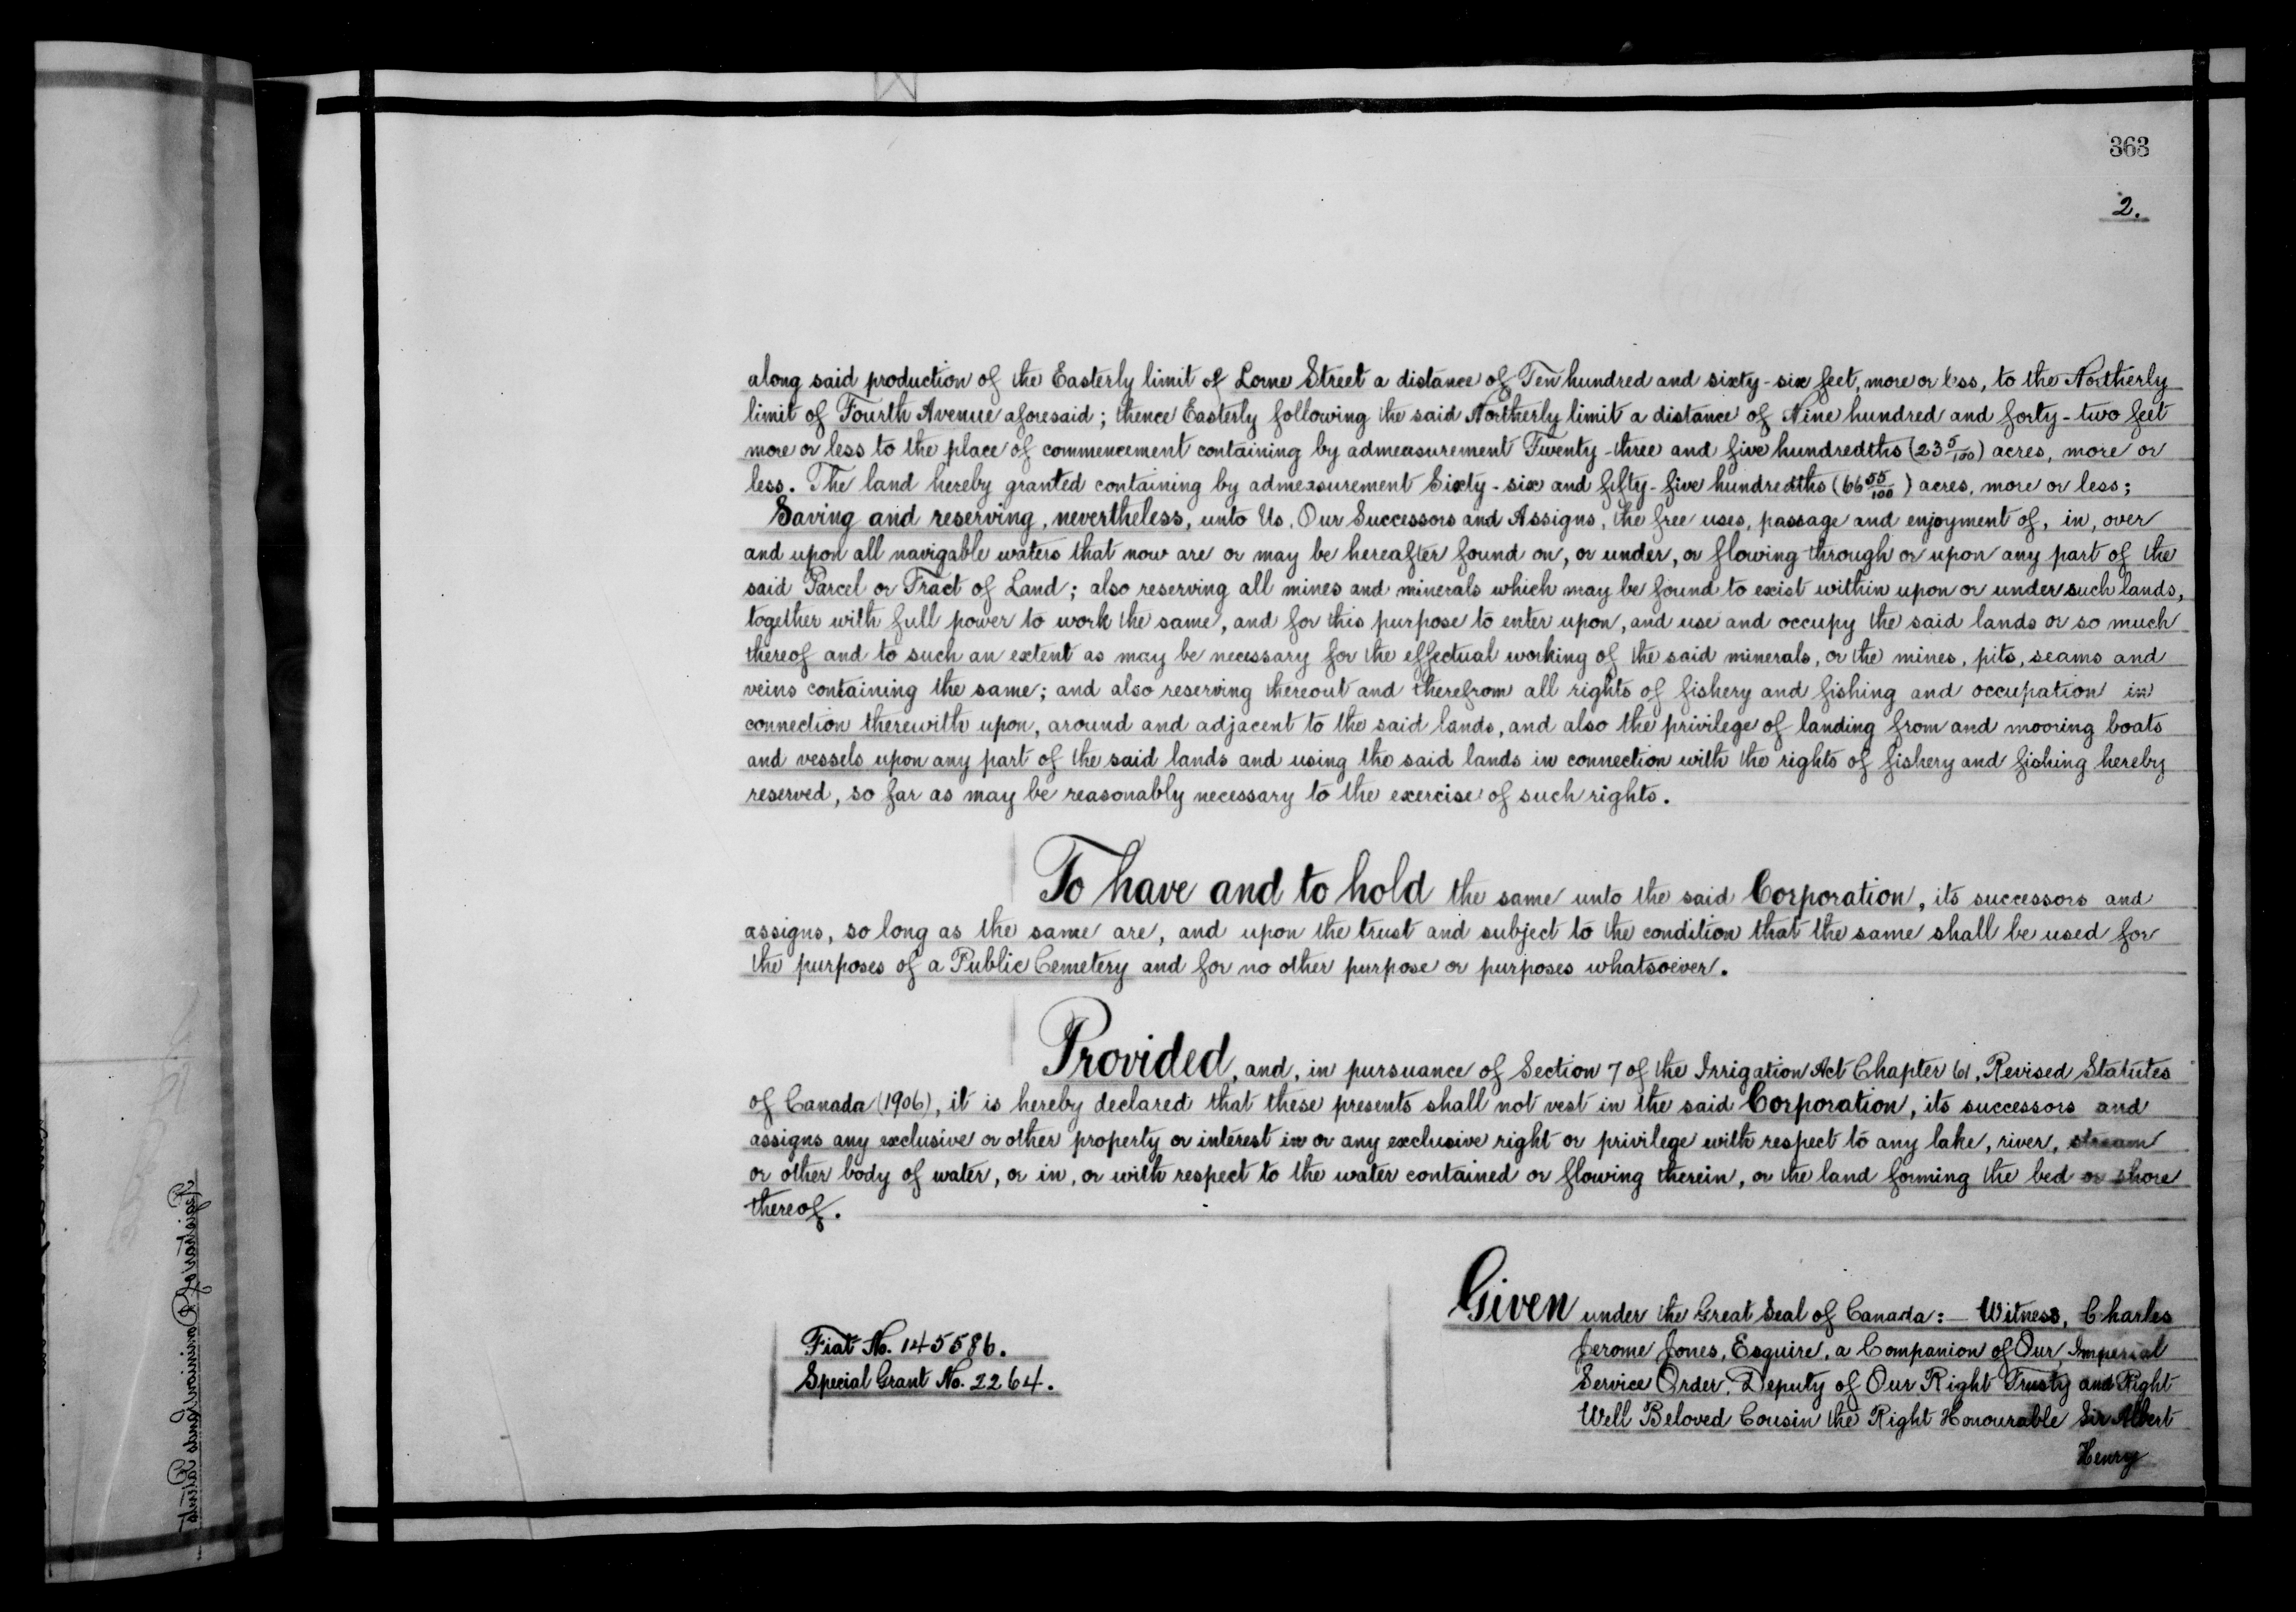 363
2.
along said production of the Easterly limit of Lorne Street a distance of Ten hundred and sixty-six feet, more or less, to the Northerly
limit of Fourth Avenue aforesaid; thence Easterly following the said Northerly limit a distance of Nine hundred and forty-two feet
more or less to the place of commencement containing by admeasurement Twenty-three and five hundredths (23 5/100) acres, more or
less. The land hereby granted containing by admeasurement Sixty-six and fifty-five hundredths (66 55/100) acres, more or less;
Saving and reserving, nevertheless, unto Us, Our Successors and Assigns, the free uses, passage and enjoyment of, in, over
and upon all navigable waters that now are or may be hereafter found on, or under, or flowing through or upon any part of the
said Parcel or Tract of Land; also reserving all mines and minerals which may be found to exist within upon or under such lands,
together with full power to work the same, and for this purpose to enter upon, and use and occupy the said lands or so much
thereof and to such an extent as may be necessary for the effectual working of the said minerals, or the mines, pits, seams and
veins containing the same; and also reserving thereout and therefrom all rights of fishery and fishing and occupation in
connection therewith upon, around and adjacent to the said lands, and also the privilege of landing from and mooring boats
and vessels upon any part of the said lands and using the said lands in connection with the rights of fishery and fishing hereby
reserved, so far as may be reasonably necessary to the exercise of such rights.
To have and to hold the same unto the said Corporation, its successors and
assigns, so long as the same are, and upon the trust and subject to the condition that the same shall be used for
the purposes of a Public Cemetery and for no other purpose or purposes whatsoever.
Provided, and, in pursuance of Section 7 of the Irrigation Act Chapter 61, Revised Statutes
of Canada (1906), it is hereby declared that these presents shall not vest in the said Corporation, its successors and
assigns any exclusive or other property or interest in or any exclusive right or privilege with respect to any lake, river, stream
or other body of water, or in, or with respect to the water contained or flowing therein, or the land forming the bed or shore
thereof.
Given under the Great Seal of Canada:— Witness, Charles
Jerome Jones, Esquire, a Companion of Our Imperial
Service Order, Deputy of Our Right Trusty and Right
Well Beloved Cousin the Right Honourable Sir Albert
Henry
Fiat No. 145586.
Special Grant No. 2264.
Registrar of Dominion Lands Patents